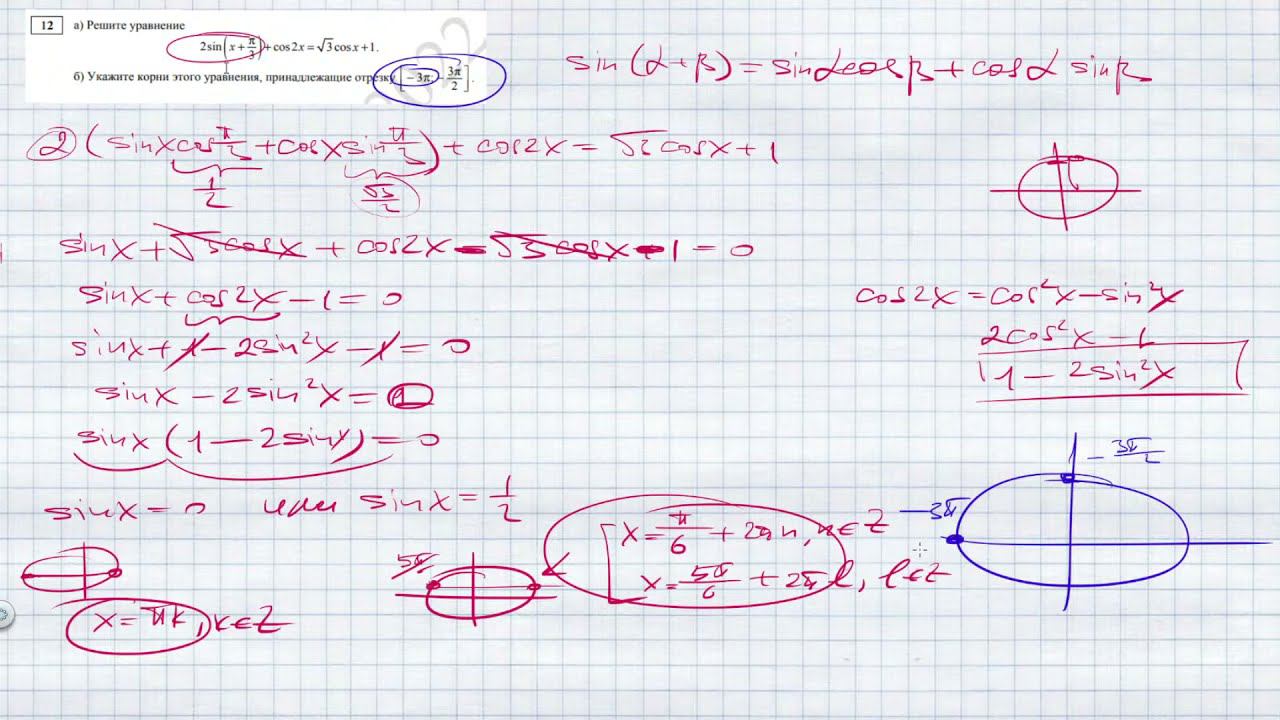 12 а) Решите уравнение
2sin(x + π/3) + cos2x = √3cosx + 1.
б) Укажите корни этого уравнения, принадлежащие отрезку [−3π; −3π/2].
sin(α+β) = sinαcosβ + cosα sinβ
2(sinxcos π/3 + cosxsin π/3) + cos2x = √3cosx + 1
1/2 √3/2
sinx + √3cosx + cos2x − √3cosx − 1 = 0
sinx + cos2x − 1 = 0
sinx + 1 − 2sin²x − 1 = 0
sinx − 2sin²x = 0
sinx(1 − 2sinx) = 0
sinx = 0 или sinx = 1/2
x = πk, k∈Z
5π/6
x = π/6 + 2πn, n∈Z
x = 5π/6 + 2πl, l∈Z
cos2x = cos²x − sin²x
2cos²x − 1
1 − 2sin²x
−3π/2
−3π